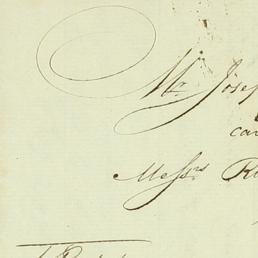 Mr Josep
car
Messrs R